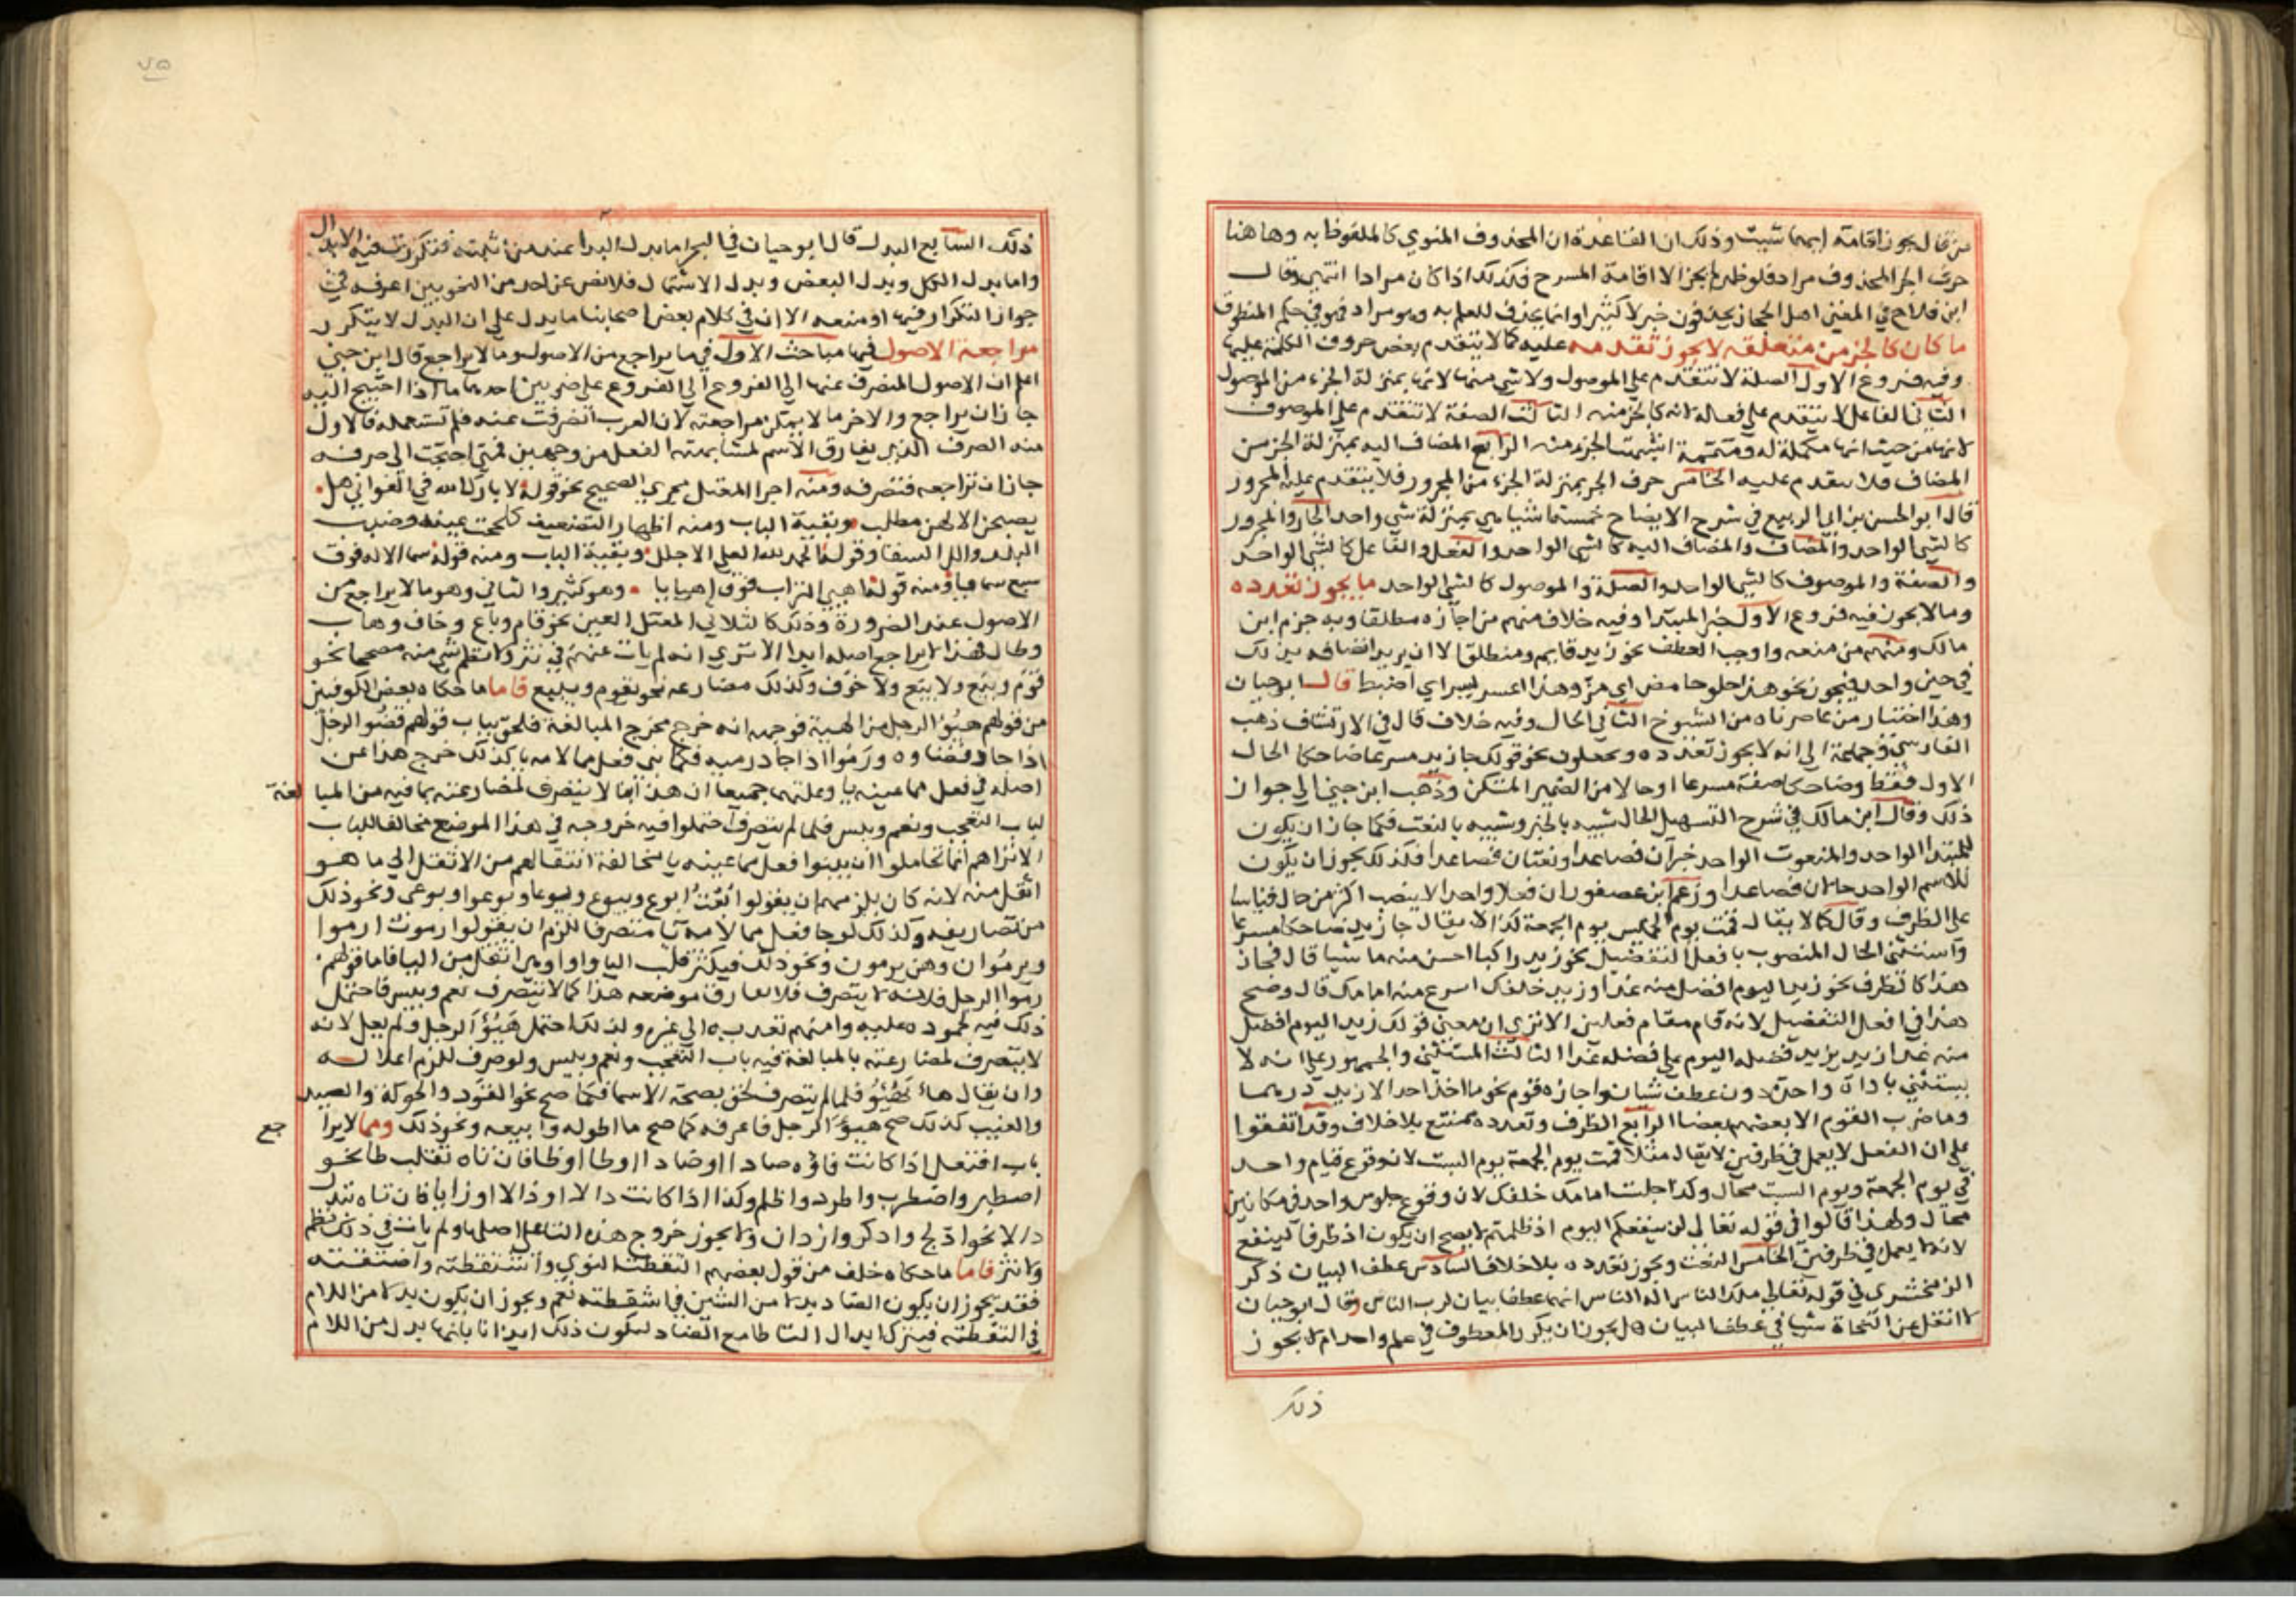 من قال يجوز اقامة ايهما شيت وذلك ان القاعدة ان المحذوف المنوي كالملفوظ به وهاهنا
حرف الجر المحذوف مراد فلو ظهر لم يجز الا اقامة المسرح فكذلك اذا كان مرادا انتهى وقال
ابن فلاح في المغني اهل الحجاز يحذفون خبر لا كثيرا وانما يحذف للعلم به وهو مراد فهو في حكم المنطوق
ما كان كالجز من متعلقه لا يجوز تقدمه عليه كما لا يتقدم بعض حروف الكلمة عليها
وفيه فروع الاول الصلة لا تتقدم علي الموصول ولا شي منها لانها بمنزلة الجزء من الموصول
الثاني الفاعل لا يتقدم علي فعله لانه كالجز منه الثالث الصفة لا تتقدم علي الموصوف
لانها من حيث انها مكملة له ومتممة اشبهت الجز منه الرابع المضاف اليه بمنزلة الجز من
المضاف فلا يتقدم عليه الخامس حرف الجر بمنزلة الجزء من المجرور فلا يتقدم عليه المجرور
قال ابو الحسن بن ابي الربيع في شرح الايضاح خمسة اشيا هي بمنزلة شي واحد الجار والمجرور
كالشي الواحد والمضاف والمضاف اليه كالشي الواحد والفعل والفاعل كالشي الواحد
والصفة والموصوف كالشي الواحد والصلة والموصول كالشي الواحد ما يجوز تعدده
وما لا يجوز فيه فروع الاول خبر المبتدا وفيه خلاف منهم من اجازه مطلقا وبه جزم ابن
مالك ومنهم من منعه واوجب العطف نحو زيد قايم ومنطلق الا ان يريد اتصافه بذلك
في حين واحد فيجوز نحو هذا حلو حامض اي مز وهذا اعسر يسر اي اضبط قال ابو حيان
وهذا اختيار من عاصرناه من الشيوخ الثاني الحال وفيه خلاف قال في الارتشاف ذهب
الفارسي وجماعة الي انه لا يجوز تعدده ويجعلون نحو قولك جا زيد مسرعا ضاحكا الحال
الاول فقط وضاحكا صفة مسرعا او حالا من الضمير المستكن وذهب ابن جني الي جواز
ذلك وقال ابن مالك في شرح التسهيل الحال شبيه بالخبر وشبيه بالنعت فكما جاز ان يكون
للمبتدا الواحد والمنعوت الواحد خبران فصاعدا ونعتان فصاعدا فكذلك يجوز ان يكون
للاسم الواحد حالان فصاعدا وزعم ابن عصفور ان فعلا واحدا لا ينصب اكثر من حال قياسا
علي الظرف وقال كما لا يقال قمت يوم الخميس يوم الجمعة كذا لا يقال جا زيد ضاحكا مسرعا
واستثنى الحال المنصوب بافعل التفضيل نحو زيد راكبا احسن منه ماشيا قال فجاز
هذا كالظرف نحو زيد اليوم افضل منه غدا وزيد خلفك اسرع منه امامك قال وصح
هذا في افعل التفضيل لانه قام مقام فعلين الا تري ان معنى قولك زيد اليوم افضل
منه غدا زيد يزيد فضله اليوم علي فضله غدا الثالث المستثنى والجمهور علي انه لا
يستثني باداة واحدة دون عطف شيان واجازه قوم نحو ما اخذ احد الا زيد درهما
وما ضرب القوم الا بعضهم بعضا الرابع الظرف وتعدده ممتنع بلا خلاف وقد اتفقوا
علي ان الفعل لا يعمل في ظرفين لا يقال مثلا قمت يوم الجمعة يوم السبت لان وقوع قيام واحد
في يوم الجمعة ويوم السبت محال وكذا جلست امامك خلفك لان وقوع جلوس واحد في مكانين
محال ولهذا قالوا في قوله تعالي لن ينفعكم اليوم اذ ظلمتم لا يصح ان يكون اذ ظرفا لينفع
لانه لا يعمل في ظرفين الخامس النعت ويجوز تعدده بلا خلاف السادس عطف البيان ذكر
الزمخشري في قوله تعالي ملك الناس اله الناس انهما عطفا بيان لرب الناس وقال ابو حيان
لا انقل عن النحاة شيا في عطف البيان هل يجوز ان يكرر المعطوف في علم واحد ام لا يجوز
ذلك
٧٥
ذلك السابع البدل قال ابو حيان في البحر اما بدل البدا عند من اثبته فتكررت فيه الابدال
واما بدل الكل وبدل البعض وبدل الاشتمال فلا نص عن احد من النحويين اعرفه في
جواز التكرار فيها او منعه الا ان في كلام بعض اصحابنا ما يدل علي ان البدل لا يتكرر
مراجعة الاصول فيها مباحث الاول في ما يراجع من الاصول وما لا يراجع قال ابن جني
اعلم ان الاصول المنصرف عنها الي الفروع علي ضربين احدهما ما اذا احتيج اليه
جاز ان يراجع والاخر ما لا يمكن مراجعته لان العرب انصرفت عنه فلم تستعمله فالاول
منه الصرف الذي يفارق الاسم لمشابهته الفعل من وجهين فمتي احتجت الي صرفه
جاز ان تراجعه فتصرفه ومنه اجرا المعتل مجري الصحيح نحو قوله لا بارك الله في الغواني هل
يصبحن الا لهن مطلب وبقية الباب ومنه اظهار التضعيف كلححت عينه وضبب
البلد والل السقا وقوله الحمد لله العلي الاجلل وبقية الباب ومنه قوله سما الاله فوق
سبع سمايا ومنه قوله اهبي التراب فوقه اهبايا وهو كثير والثاني وهو ما لا يراجع من
الاصول عند الضرورة وذلك كالثلاثي المعتل العين نحو قام وباع وخاف وهاب
وطال فهذا لا يراجع اصله ابدا الا تري انه لم يات عنهم في نثر ولا نظم شي منه مصححا نحو
قوم وبيع ولا بيع ولا خوف وكذلك مضارعه نحو يقوم ويبيع فاما ما حكاه بعض الكوفيين
من قولهم هيؤ الرجل من الهيئة فوجهه انه خرج مخرج المبالغة فلحق بباب قولهم قضو الرجل
اذا جاد قضاوه ورموا اذا جاد رميه فكما بني فعل مما لامه يا كذلك خرج هذا عن
اصله في فعل مما عينه يا وعلتهما جميعا ان هذا بنا لا يتصرف لمضارعته بما فيه من المبالغة
لباب التعجب ونعم وبيس فلما لم يتصرف احتملوا فيه خروجه في هذا الموضع مخالفا للباب
الا تراهم انما تحاموا ان يبنوا فعل مما عينه يا مخالفة انتقالهم من الاثقل الي ما هو
اثقل منه لانه كان يلزمهم ان يقولوا بعت ابوع ويبوع ونبوع وتبوعا وتبوعوا وبوعي ونحو ذلك
من تصاريفه وكذلك لو جا فعل مما لامه يا متصرفا للزم ان يقولوا رموت ارموا
ويرموان وهن يرمون ونحو ذلك فيكثر قلب اليا واوا وهي اثقل من اليا فاما قولهم
رموا الرجل فلانه لا يتصرف فلا يفارق موضعه هذا كما لا يتصرف نعم وبيس فاحتمل
ذلك فيه لجموده عليه وامنهم تعديه الي غيره ولذلك احتمل هيؤ الرجل ولم يعل لانه
لا يتصرف لمضارعته بالمبالغة فيه باب التعجب ونعم وبيس ولو صرف للزم اعلاله
وان يقال هاء يهوء فلما لم يتصرف لحق بصحة الاسما فكما صح نحو القود والحوكة والصيد
والغيب كذلك صح هيؤ الرجل فاعرفه كما صح ما اطوله وابيعه ونحو ذلك ومما لا يراجع
باب افتعل اذا كانت فاؤه صادا او ضادا او طا او ظا فان تاه تقلب طا نحو
اصطبر واضطرب واطرد واظلم وكذا اذا كانت دالا او ذالا او زايا فان تاه تبدل
دالا نحو ادلج وادكر وازدان ولا يجوز خروج هذه التا علي اصلها ولم يات في ذلك نظم
ولا نثر فاما ما حكاه خلف من قول بعضهم التقطت النوي واشتقطته واضتقطته
فقد يجوز ان يكون الضاد بدلا من الشين في اشتقطته نعم ويجوز ان يكون بدلا من اللام
في التقطته فيترك ابدال التا طا مع الضاد ليكون ذلك ايذانا بانها بدل من اللام